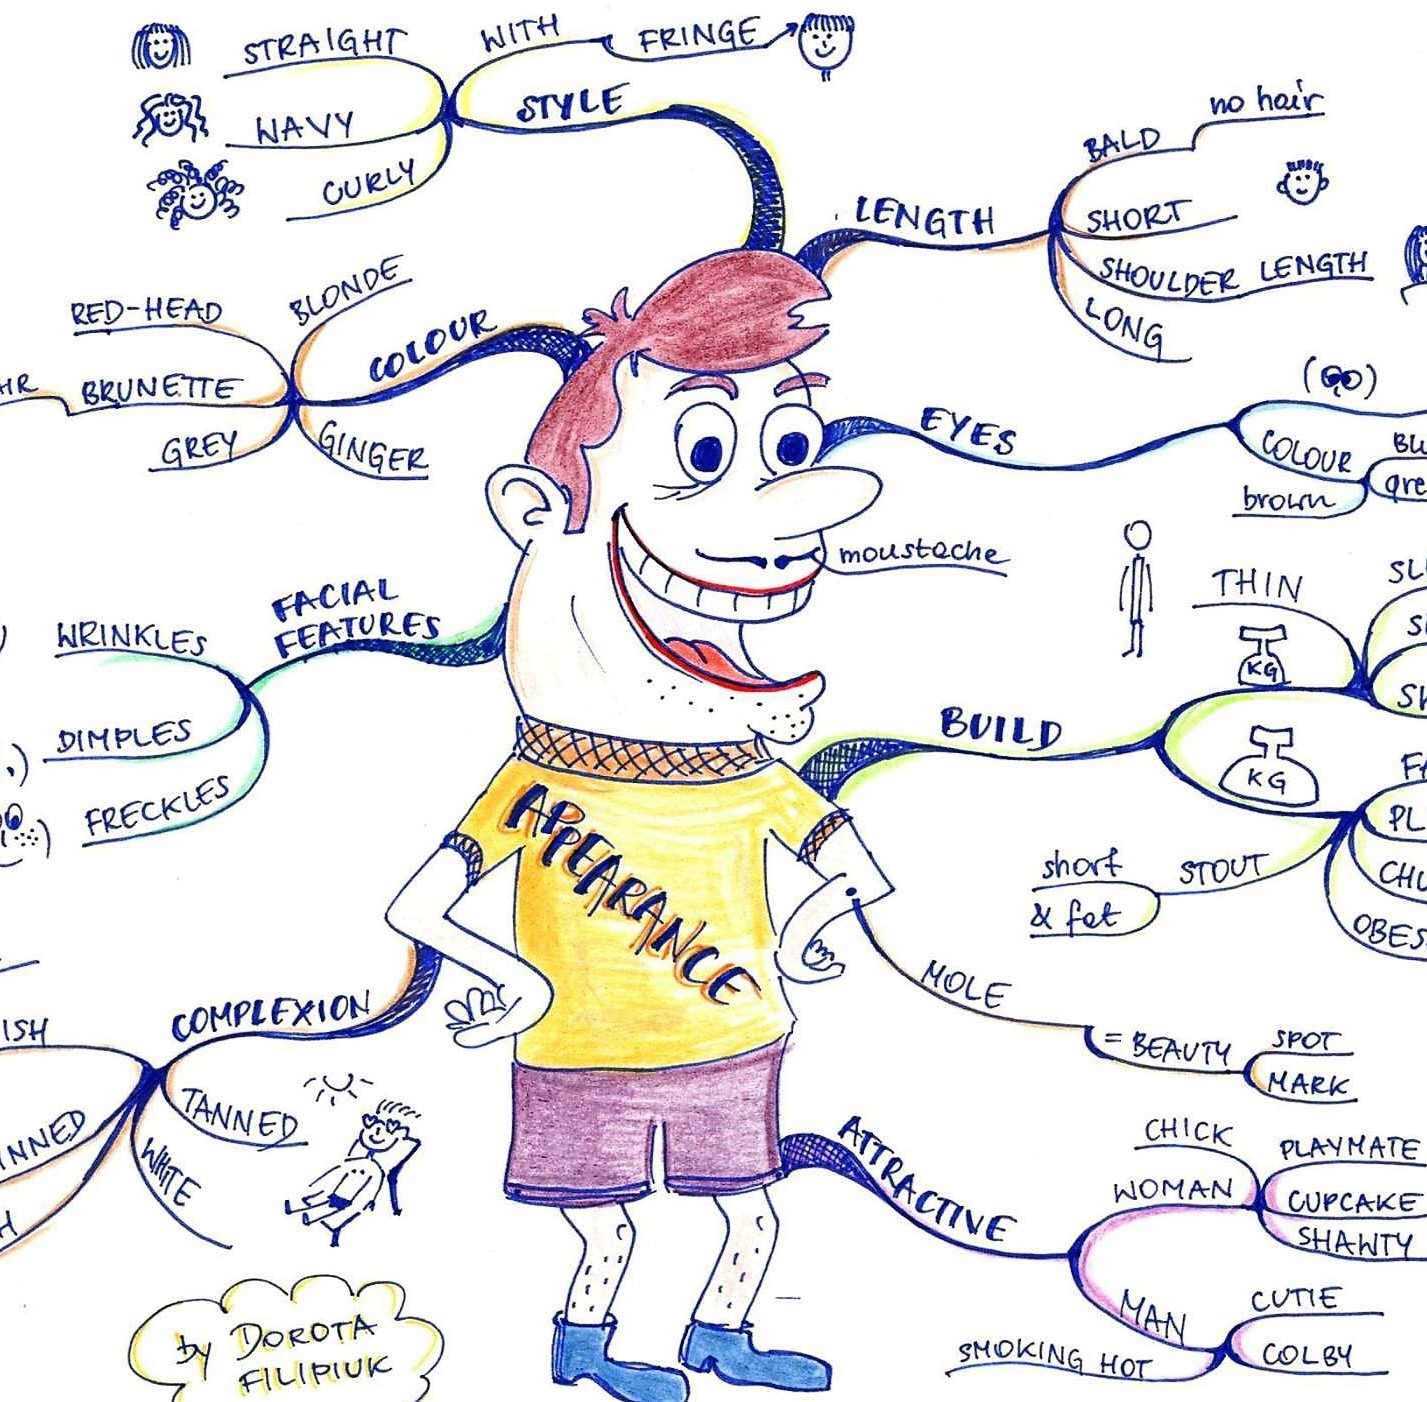 STRAIGHT
WAVY
CURLY
WITH
FRINGE
STYLE
LENGTH
BALD
no hair
SHORT
SHOULDER LENGTH
LONG
COLOUR
BLONDE
RED-HEAD
BRUNETTE
GREY
GINGER
EYES
COLOUR
brown
moustache
FACIAL
FEATURES
WRINKLES
DIMPLES
FRECKLES
BUILD
THIN
KG
KG
STOUT
short
& fat
APPEARANCE
MOLE
= BEAUTY
SPOT
MARK
COMPLEXION
TANNED
WHITE
ATTRACTIVE
WOMAN
CHICK
PLAYMATE
CUPCAKE
SHAWTY
MAN
CUTIE
COLBY
SMOKING HOT
by DOROTA
FILIPIUK